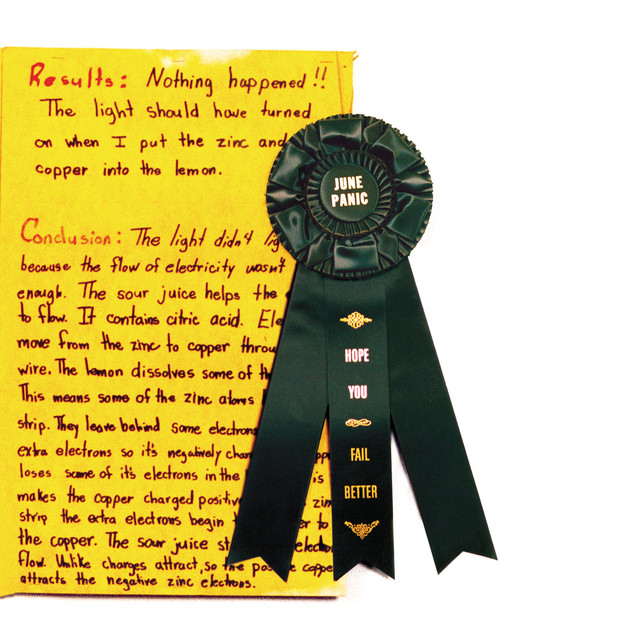 Results: Nothing happened!!
The light should have turned
on when I put the zinc and
copper into the lemon.
Conclusion: The light didn't
because the flow of electricity wasn't
enough. The sour juice helps the
to flow. It contains citric acid.
move from the zinc to copper
wire. The lemon dissolves some of
This means some of the zinc atoms
strip. They leave behind some
extra electrons so it's negatively
loses some of it's electrons in the is
makes the copper charged
strip the extra electrons begin to
the copper. The sour juice
flow. Unlike charges attract, so the
attracts the negative zinc electrons.
JUNE
PANIC
HOPE
YOU
FAIL
BETTER